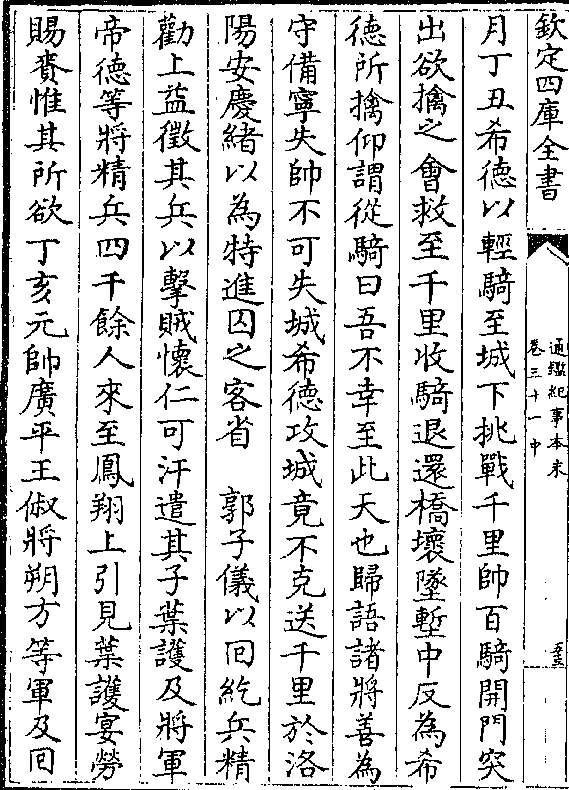 欽定四庫全書
通鑑紀事本末
卷三十一中
至
月丁丑希德以輕騎至城下挑戰千里帥百騎開門突
出欲擒之會救至千里收騎退還橋壞墜塹中反為希
德所擒仰謂從騎曰吾不幸至此天也歸語諸將善為
守備寧失帥不可失城希德攻城竟不克送千里於洛
陽安慶緒以為特進囚之客省　郭子儀以回紇兵精
勸上益徵其兵以擊賊懷仁可汗遣其子葉護及將軍
帝德等將精兵四千餘人來至鳳翔上引見葉護宴勞
賜賚惟其所欲丁亥元帥廣平王俶將朔方等軍及回